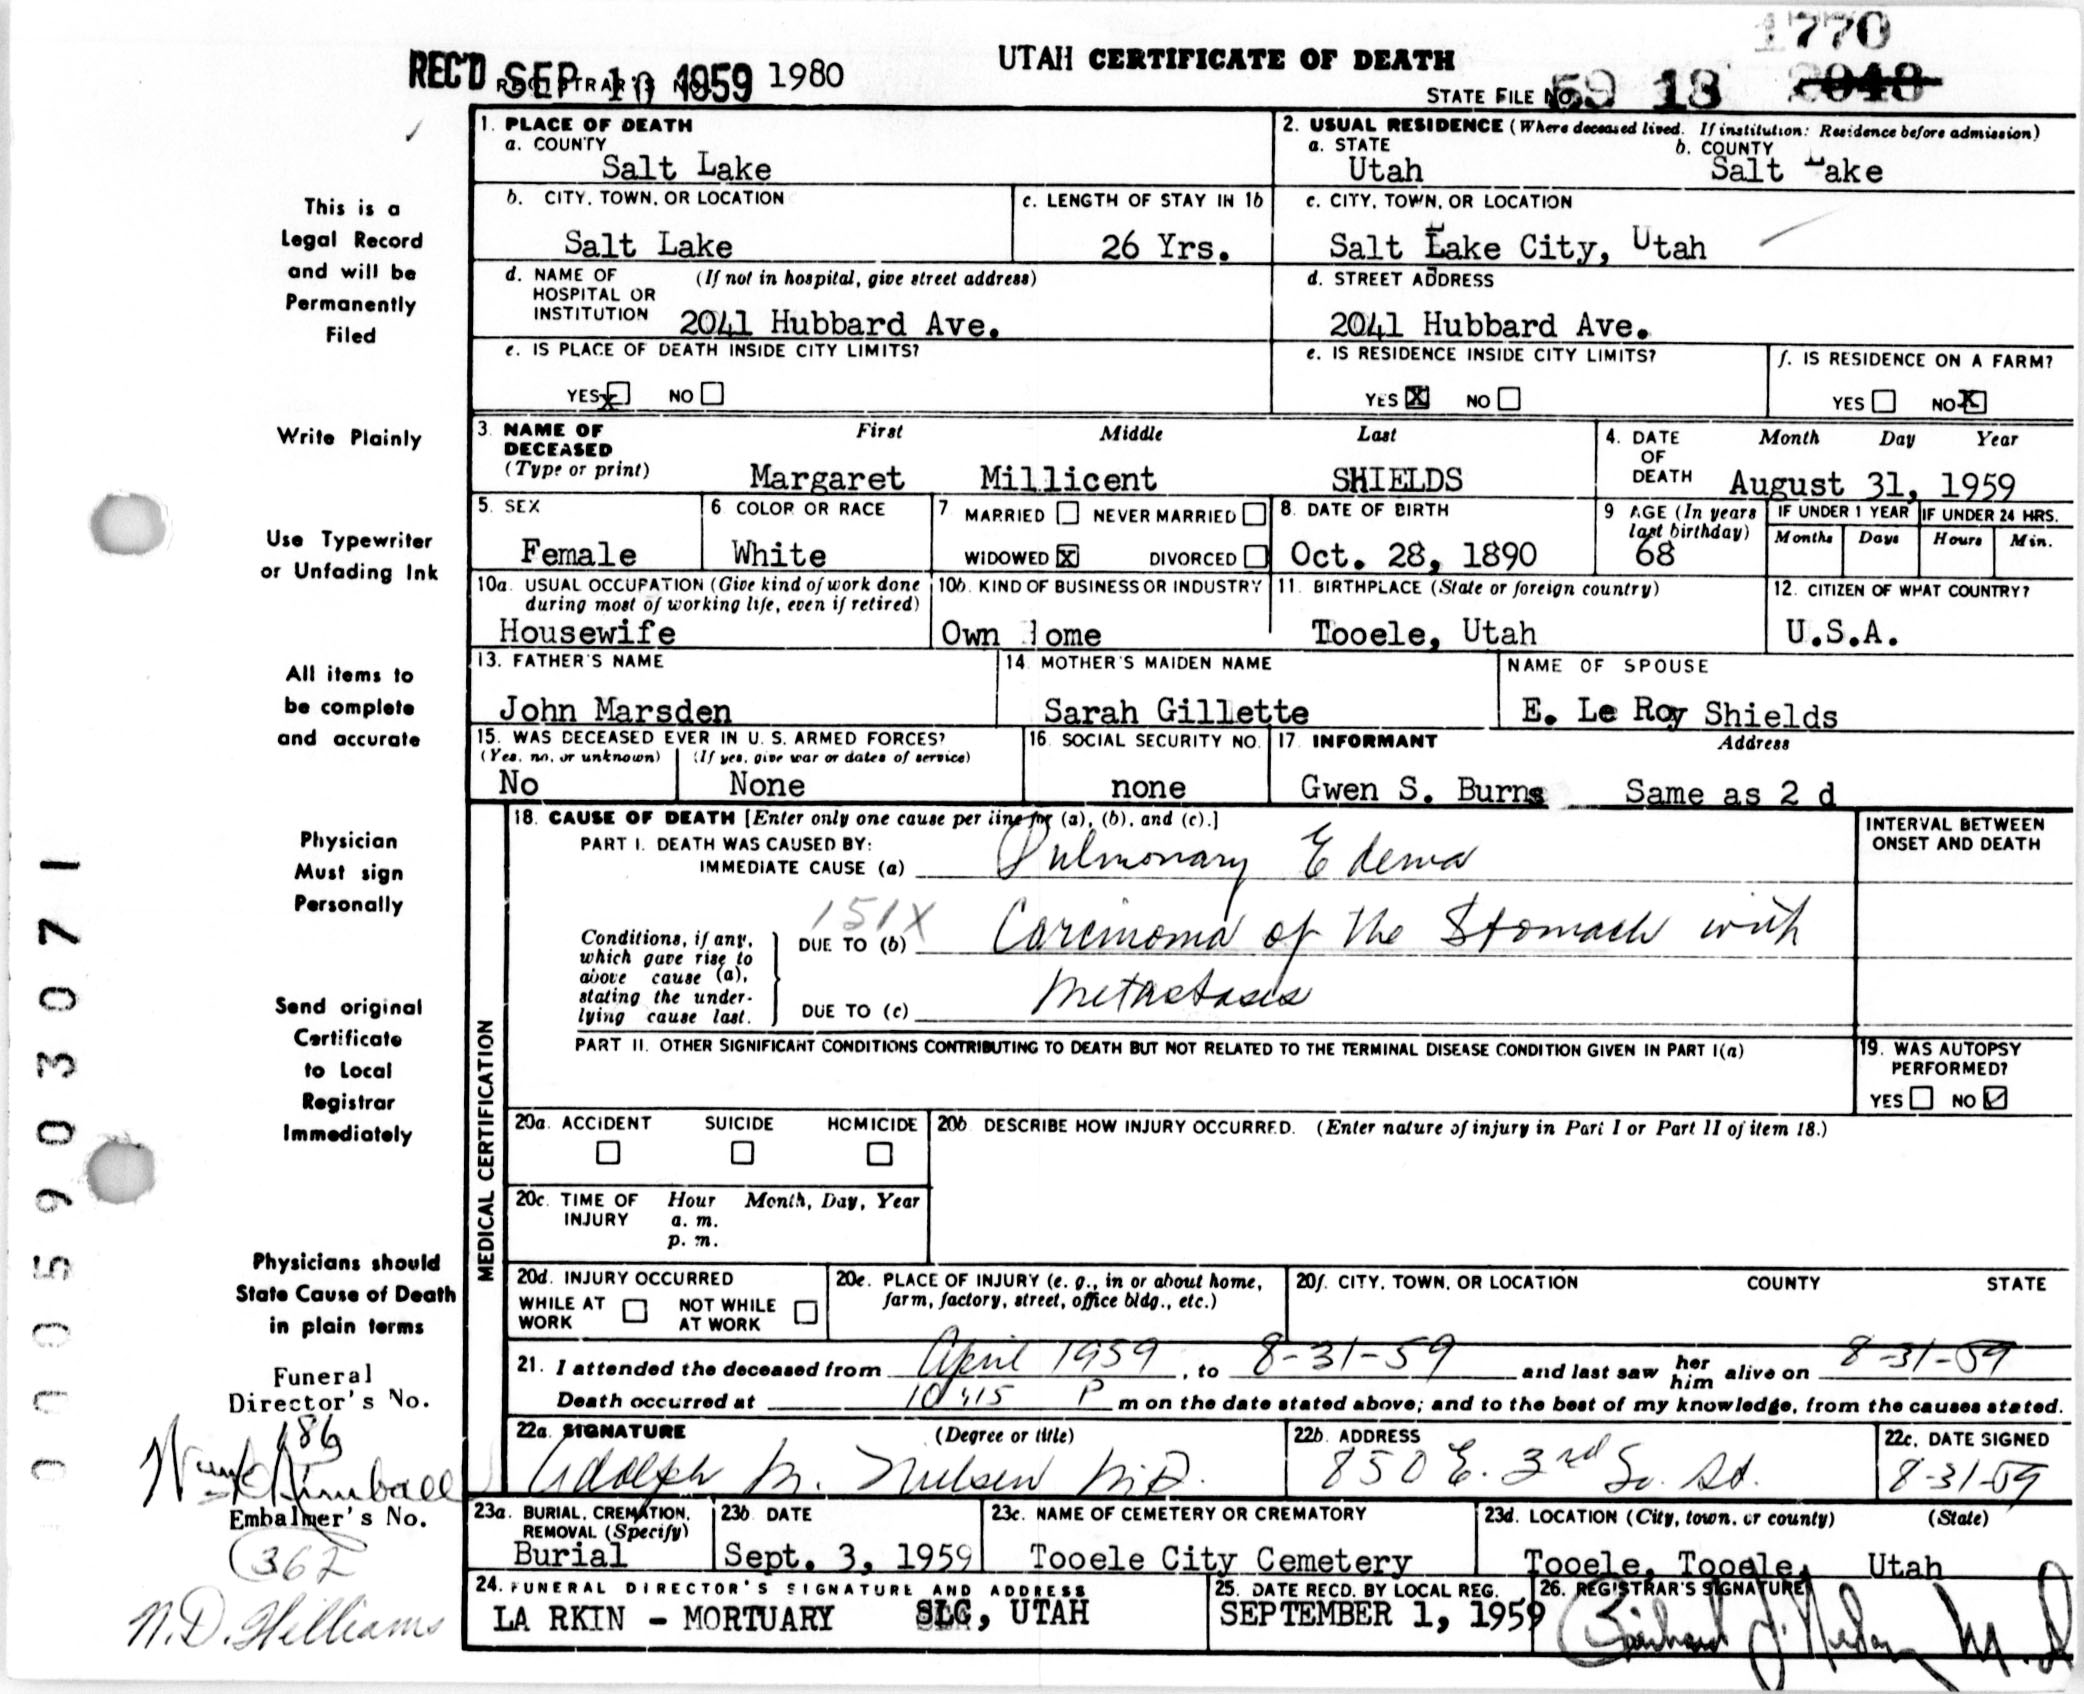 1770
UTAH CERTIFICATE OF DEATH
REC'D SEP 10 1959 1980
STATE FILE NO. 59 18 2048
1. PLACE OF DEATH
a. COUNTY
Salt Lake
2. USUAL RESIDENCE (Where deceased lived. If institution: Residence before admission)
a. STATE b. COUNTY
Utah Salt Lake
b. CITY, TOWN, OR LOCATION
Salt Lake
c. LENGTH OF STAY IN 1b
26 Yrs.
c. CITY, TOWN, OR LOCATION
Salt Lake City, Utah
d. NAME OF HOSPITAL OR INSTITUTION (If not in hospital, give street address)
2041 Hubbard Ave.
d. STREET ADDRESS
2041 Hubbard Ave.
e. IS PLACE OF DEATH INSIDE CITY LIMITS?
YES X NO
e. IS RESIDENCE INSIDE CITY LIMITS?
YES X NO
f. IS RESIDENCE ON A FARM?
YES NO X
3. NAME OF DECEASED (Type or print)
First Middle Last
Margaret Millicent SHIELDS
4. DATE OF DEATH
Month Day Year
August 31, 1959
5. SEX
Female
6 COLOR OR RACE
White
7 MARRIED NEVER MARRIED
WIDOWED X DIVORCED
8. DATE OF BIRTH
Oct. 28, 1890
9 AGE (In years last birthday)
68
IF UNDER 1 YEAR
Months Days
IF UNDER 24 HRS.
Hours Min.
10a. USUAL OCCUPATION (Give kind of work done during most of working life, even if retired)
Housewife
10b. KIND OF BUSINESS OR INDUSTRY
Own Home
11. BIRTHPLACE (State or foreign country)
Tooele, Utah
12. CITIZEN OF WHAT COUNTRY?
U.S.A.
13. FATHER'S NAME
John Marsden
14. MOTHER'S MAIDEN NAME
Sarah Gillette
NAME OF SPOUSE
E. Le Roy Shields
15. WAS DECEASED EVER IN U. S. ARMED FORCES?
(Yes, no, or unknown) (If yes, give war or dates of service)
No None
16. SOCIAL SECURITY NO.
none
17. INFORMANT Address
Gwen S. Burns Same as 2 d
MEDICAL CERTIFICATION
18. CAUSE OF DEATH [Enter only one cause per line for (a), (b), and (c).]
PART I. DEATH WAS CAUSED BY:
IMMEDIATE CAUSE (a) Pulmonary Edema
INTERVAL BETWEEN ONSET AND DEATH
151X
Conditions, if any, which gave rise to above cause (a), stating the underlying cause last.
DUE TO (b) Carcinoma of the Stomach with
DUE TO (c) Metastasis
PART II. OTHER SIGNIFICANT CONDITIONS CONTRIBUTING TO DEATH BUT NOT RELATED TO THE TERMINAL DISEASE CONDITION GIVEN IN PART I(a)
19. WAS AUTOPSY PERFORMED?
YES NO ✓
20a. ACCIDENT SUICIDE HOMICIDE
20b. DESCRIBE HOW INJURY OCCURRED. (Enter nature of injury in Part I or Part II of item 18.)
20c. TIME OF INJURY Hour Month, Day, Year
a. m.
p. m.
20d. INJURY OCCURRED
WHILE AT WORK NOT WHILE AT WORK
20e. PLACE OF INJURY (e. g., in or about home, farm, factory, street, office bldg., etc.)
20f. CITY, TOWN, OR LOCATION COUNTY STATE
21. I attended the deceased from April 1959, to 8-31-59 and last saw her him alive on 8-31-59
Death occurred at 10:15 P m on the date stated above; and to the best of my knowledge, from the causes stated.
22a. SIGNATURE (Degree or title)
Adolph M. Nielsen M.D.
22b. ADDRESS
850 E. 3rd So. St.
22c. DATE SIGNED
8-31-59
23a. BURIAL, CREMATION, REMOVAL (Specify)
Burial
23b. DATE
Sept. 3, 1959
23c. NAME OF CEMETERY OR CREMATORY
Tooele City Cemetery
23d. LOCATION (City, town, or county) (State)
Tooele, Tooele, Utah
24. FUNERAL DIRECTOR'S SIGNATURE AND ADDRESS
LARKIN - MORTUARY SLC, UTAH
25. DATE RECD. BY LOCAL REG.
SEPTEMBER 1, 1959
26. REGISTRAR'S SIGNATURE
M.D.
This is a
Legal Record
and will be
Permanently
Filed
Write Plainly
Use Typewriter
or Unfading Ink
All items to
be complete
and accurate
Physician
Must sign
Personally
Send original
Certificate
to Local
Registrar
Immediately
Physicians should
State Cause of Death
in plain terms
Funeral
Director's No.
186
Kimball
Embalmer's No.
362
N.D. Williams
0005903071